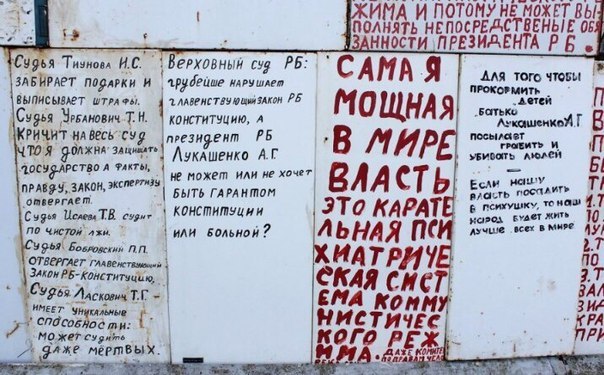 ЖИМА И ПОТОМУ НЕ МОЖЕТ ВЫ-
ПОЛНЯТЬ НЕПОСРЕДСТВЕНЫЕ ОБЯ
ЗАННОСТИ ПРЕЗИДЕНТА РБ.
Судья Тиунова И.С.
ЗАБИРАЕТ ПОДАРКИ И
ВЫПИСЫВАЕТ ШТРАФЫ.
Судья Урбанович Т.Н.
КРИЧИТ НА ВЕСЬ СУД
ЧТО Я ДОЛЖНА ЗАЩИЩАТЬ
ГОСУДАРСТВО А ФАКТЫ,
ПРАВДУ, ЗАКОН, ЭКСПЕРТИЗУ
ОТВЕРГАЕТ.
Судья Исаева Т.В. СУДИТ
ПО ЧИСТОЙ ЛЖИ.
Судья Бобровский П.П.
ОТВЕРГАЕТ ГЛАВЕНСТВУЮЩИЙ
ЗАКОН РБ-КОНСТИТУЦИЮ,
Судья Ласкович Т.Г.
ИМЕЕТ УНИКАЛЬНЫЕ
СПОСОБНОСТИ:
МОЖЕТ СУДИТЬ
ДАЖЕ МЁРТВЫХ.
ВЕРХОВНЫЙ СУД РБ:
ГРУБЕЙШЕ НАРУШАЕТ
ГЛАВЕНСТВУЮЩИЙ ЗАКОН РБ
КОНСТИТУЦИЮ, А
ПРЕЗИДЕНТ РБ
ЛУКАШЕНКО А.Г.
НЕ МОЖЕТ ИЛИ НЕ ХОЧЕТ
БЫТЬ ГАРАНТОМ
КОНСТИТУЦИИ
ИЛИ БОЛЬНОЙ?
САМАЯ
МОЩНАЯ
В МИРЕ
ВЛАСТЬ
ЭТО КАРАТЕ
ЛЬНАЯ ПСИ
ХИАТРИЧЕ
СКАЯ СИСТ
ЕМА КОММУ
НИСТИЧЕС
КОГО РЕЖ
ИМА. ДАЖЕ КОМИТЕ
ДЛЯ ТОГО ЧТОБЫ
ПРОКОРМИТЬ
ДЕТЕЙ
БАТЬКО
ЛУКАШЕНКО А.Г
ПОСЫЛАЕТ
ГРАБИТЬ И
УБИВАТЬ ЛЮДЕЙ
—
ЕСЛИ НАШУ
ВЛАСТЬ ПОСАДИТЬ
В ПСИХУШКУ, ТО НАШ
НАРОД БУДЕТ ЖИТЬ
ЛУЧШЕ ВСЕХ В МИРЕ